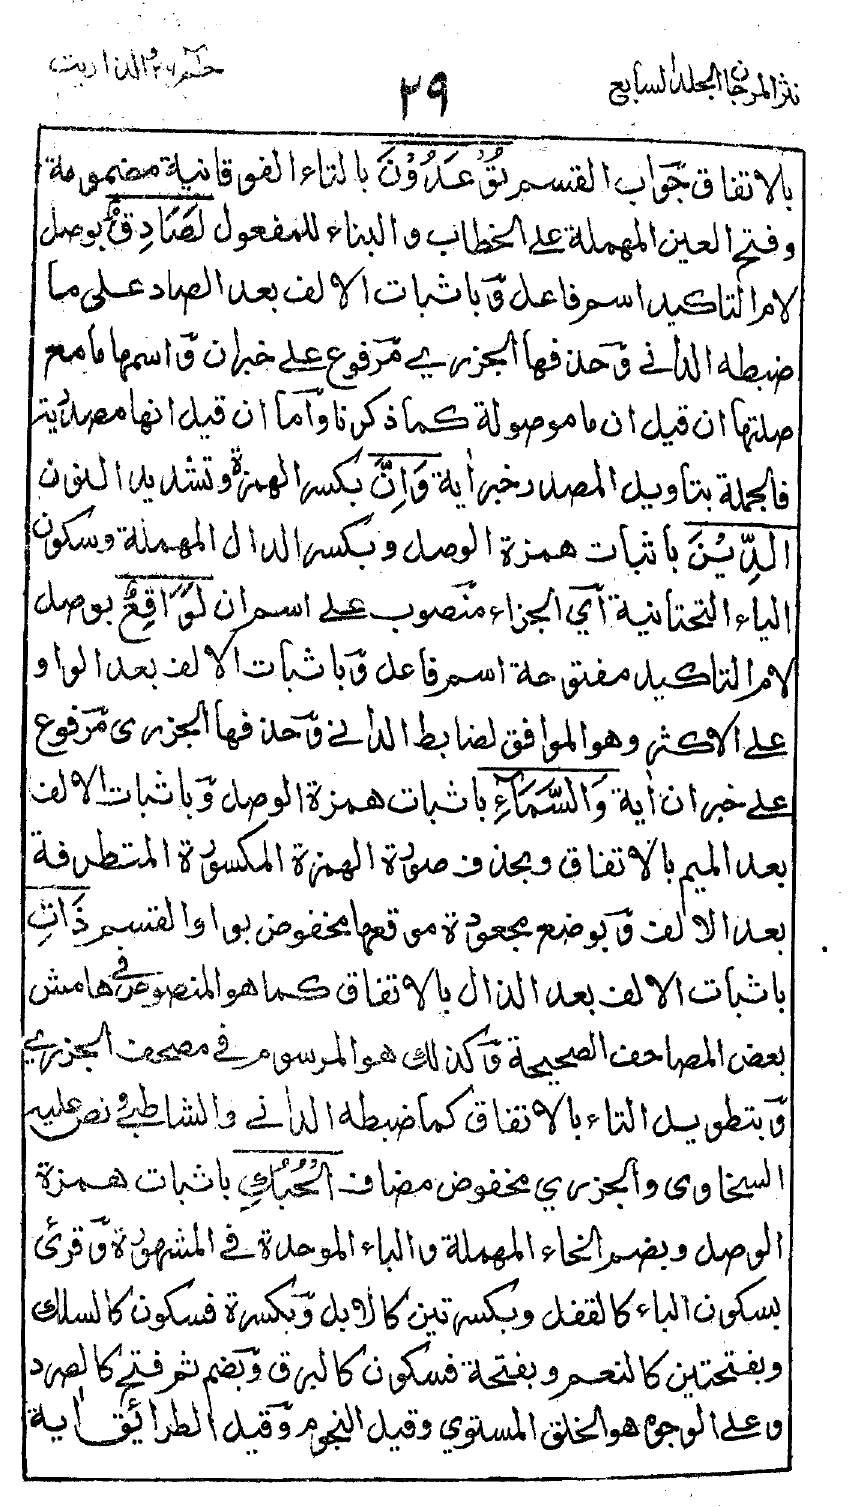 نثر المرجان الجلد السابع
٢٩
حٰم ٢٦ والذاريت
بالاتفاق جواب القسم تُوْعَدُوْنَ بالتاء الفوقانية مضمومة
وفتح العين المهملة على الخطاب والبناء للمفعول لَصَادِقٌ بوصل
لام التاكيد اسم فاعل وباثبات الالف بعد الصاد على ما
ضبطه الداني وحذفها الجزري مرفوع على خبر ان واسمها ما مع
صلتها ان قيل ان ما موصولة كما ذكرنا واما ان قيل انها مصدرية
فالجملة بتاويل المصدر خبر اٰية وَاِنَّ بكسر الهمزة وتشديد النون
الدِّيْنَ باثبات همزة الوصل وبكسر الدال المهملة وسكون
الياء التحتانية اي الجزاء منصوب على اسم ان لَوَاقِعٌ بوصل
لام التاكيد مفتوحة اسم فاعل وباثبات الالف بعد الواو
على الاكثر وهو الموافق لضابط الداني وحذفها الجزري مرفوع
على خبر ان اٰية وَالسَّمَآءِ باثبات همزة الوصل وباثبات الالف
بعد الميم بالاتفاق وبحذف صورة الهمزة المكسورة المتطرفة
بعد الالف وبوضع مجعودة موقعها مخفوض بواو القسم ذَاتِ
باثبات الالف بعد الذال بالاتفاق كما هو المنصوص في هامش
بعض المصاحف الصحيحة وكذلك هو المرسوم في مصحف الجزري
وبتطويل التاء بالاتفاق كما ضبطه الداني والشاطبي ونص عليه
السخاوي والجزري مخفوض مضاف الْحُبُكِ باثبات همزة
الوصل وبضم الحاء المهملة والباء الموحدة في المشهورة وقرئ
بسكون الباء كالقفل وبكسرتين كالابل وبكسرة فسكون كالسلك
وبفتحتين كالنعم وبفتحة فسكون كالبرق وبضم ثم فتح كالصرد
وعلى الوجوه هو الخلق المستوي وقيل النجوم وقيل الطرائق اٰية